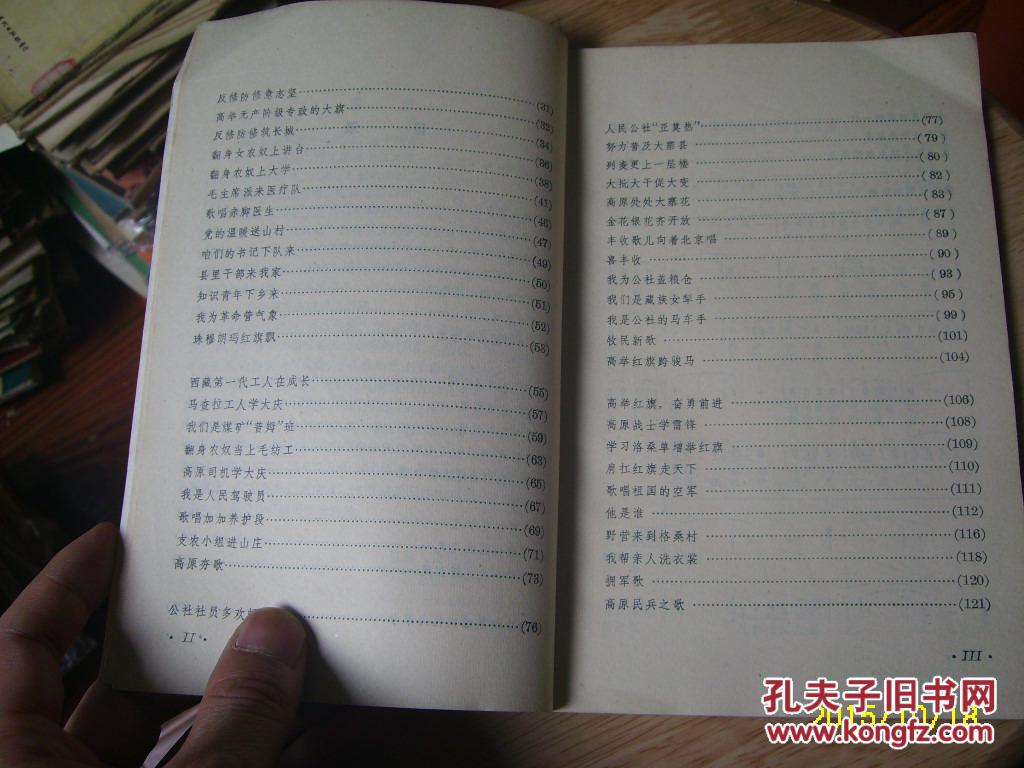 反修防修意志坚 (31)
高举无产阶级专政的大旗 (32)
反修防修筑长城 (34)
翻身女农奴上讲台 (36)
翻身农奴上大学 (38)
毛主席派来医疗队 (41)
歌唱赤脚医生 (46)
党的温暖送山村 (47)
咱们的书记下队来 (49)
县里干部来我家 (50)
知识青年下乡来 (51)
我为革命管气象 (52)
珠穆朗玛红旗飘 (53)
西藏第一代工人在成长 (55)
马查拉工人学大庆 (57)
我们是煤矿“普姆”班 (59)
翻身农奴当上毛纺工 (63)
高原司机学大庆 (65)
我是人民驾驶员 (67)
歌唱加加养护段 (69)
支农小组进山庄 (71)
高原夯歌 (73)
公社社员多欢 (76)
· II ·
人民公社“亚莫热” (77)
努力普及大寨县 (79)
列麦更上一层楼 (80)
大批大干促大变 (82)
高原处处大寨花 (83)
金花银花齐开放 (87)
丰收歌儿向着北京唱 (89)
喜丰收 (90)
我为公社盖粮仓 (93)
我们是藏族女车手 (95)
我是公社的马车手 (99)
牧民新歌 (101)
高举红旗跨骏马 (104)
高举红旗，奋勇前进 (106)
高原战士学雷锋 (108)
学习洛桑单增举红旗 (109)
肩扛红旗走天下 (110)
歌唱祖国的空军 (111)
他是谁 (112)
野营来到格桑村 (116)
我帮亲人洗衣裳 (118)
拥军歌 (120)
高原民兵之歌 (121)
· III ·
孔夫子旧书网
2015/12/18
www.kongfz.com